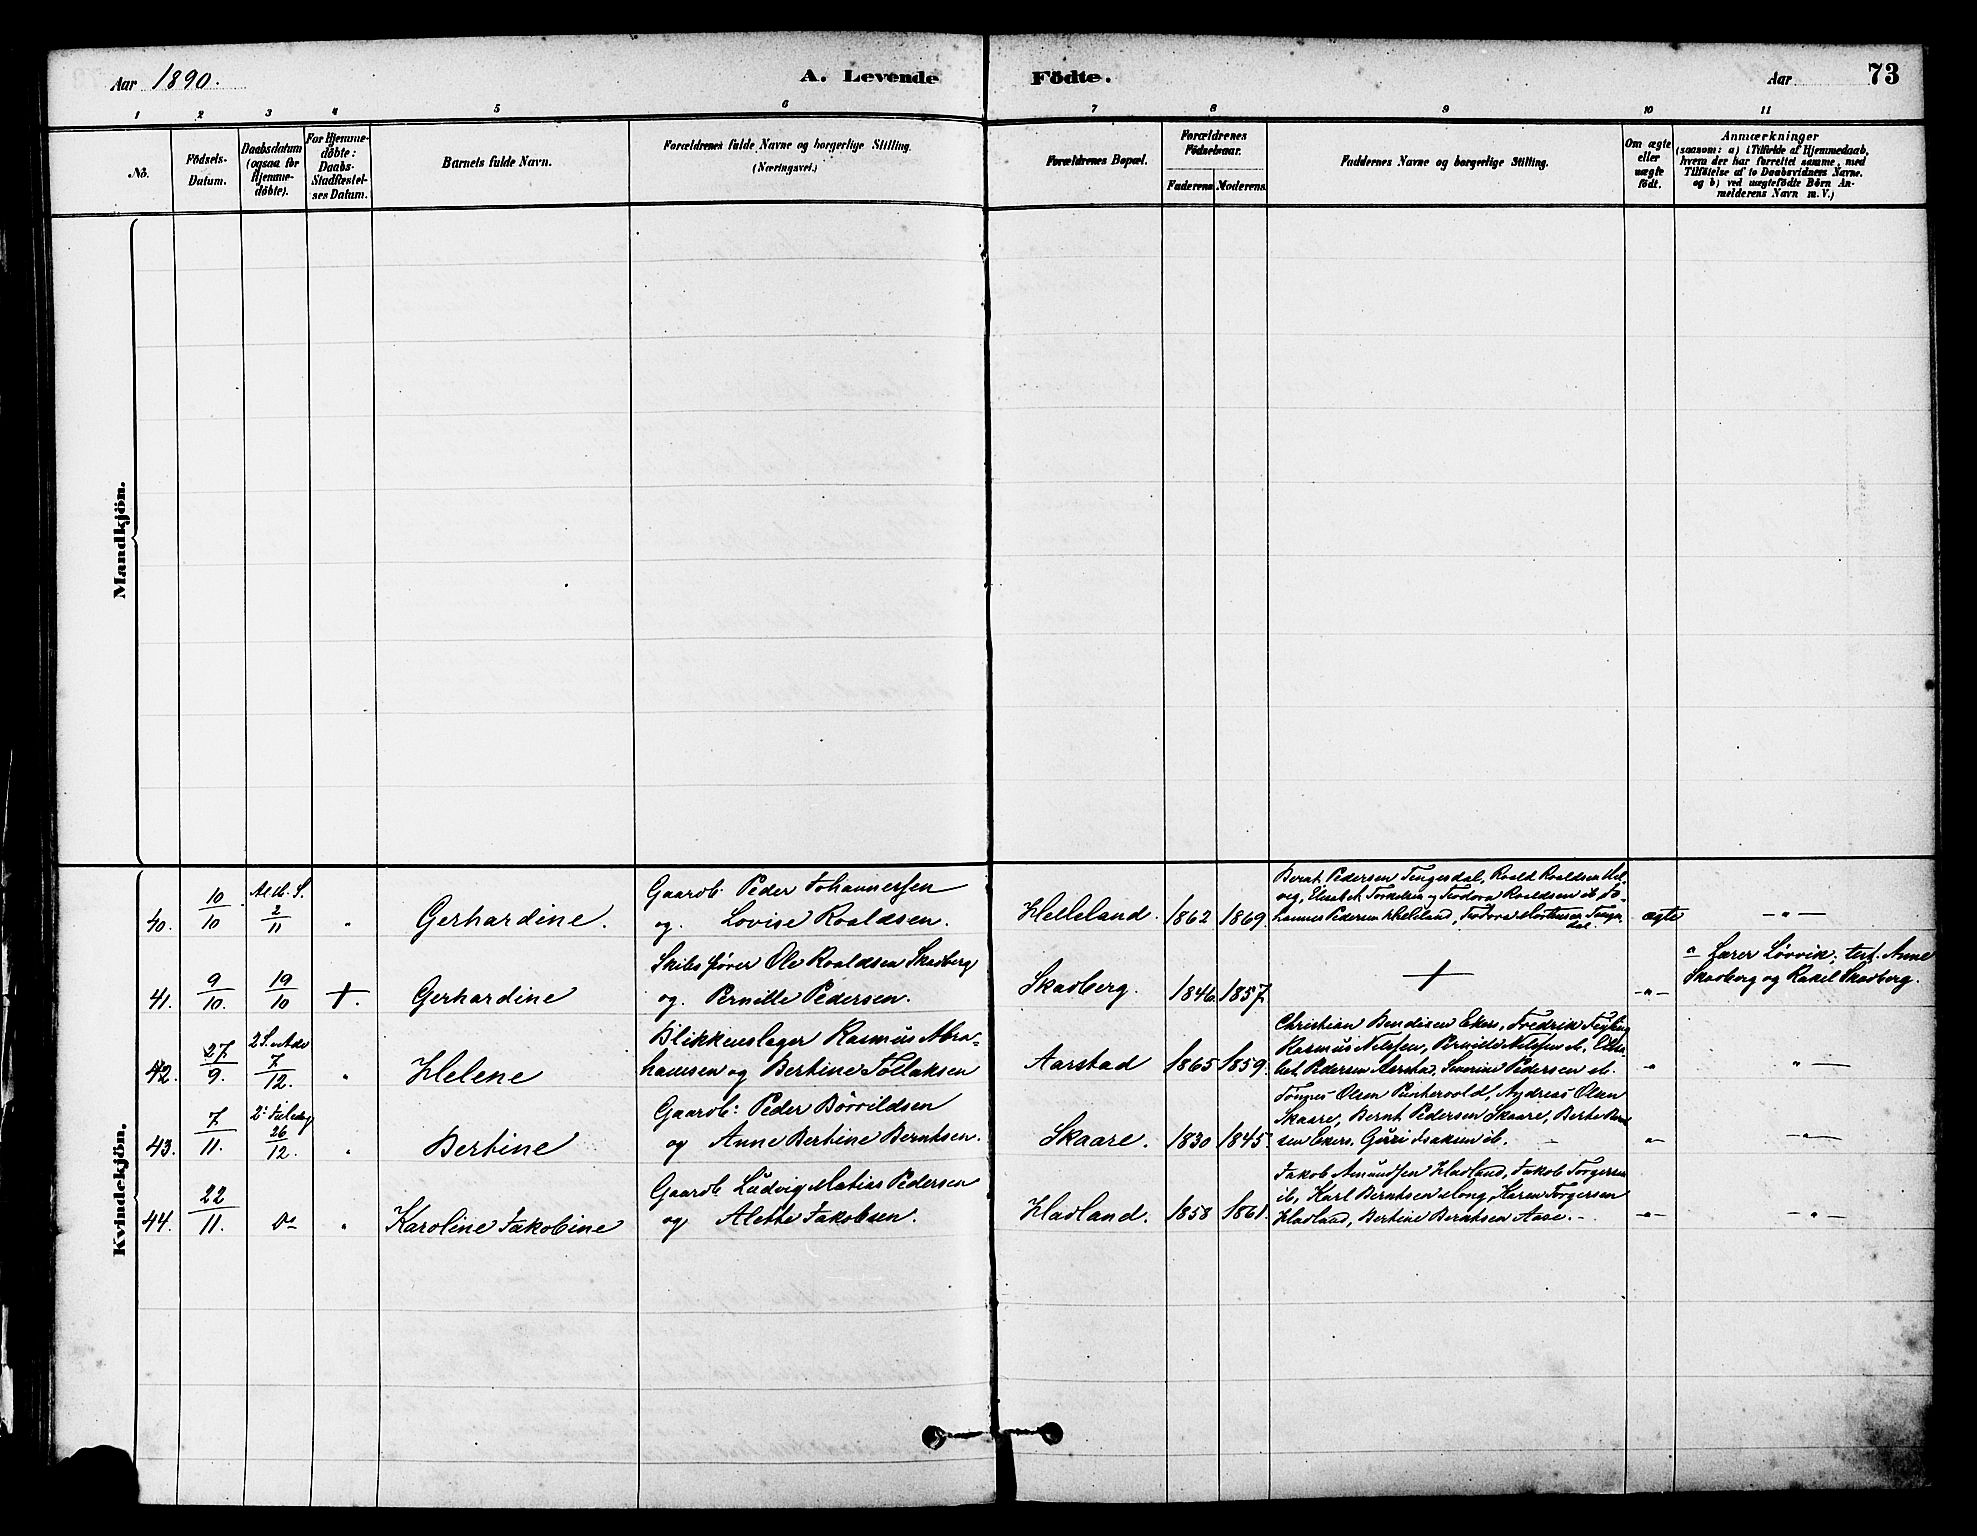 Aar 1890.
A. Levende Födte.
Aar
73
1 2 3 4 5 6 7 8 9 10 11
No.
Födsels-
Datum.
Daabsdatum
(ogsaa for
Hjemme-
döbte).
For Hjemme-
döbte:
Daabs-
Stadfæstel-
ses Datum.
Barnets fulde Navn.
Forældrenes fulde Navne og borgerlige Stilling.
(Næringsvei.)
Forældrenes Bopæl.
Forældrenes
Födselsaar.
Faderens Moderens.
Faddernes Navne og borgerlige Stilling.
Om ægte
eller
uægte
födt.
Anmærkninger
(saasom: a) i Tilfælde af Hjemmedaab,
hvem der har forrettet samme, med
Tilföielse af to Daabsvidners Navne.
og b) ved uægtefödte Börn An-
melderens Navn m. V.)
Mandkjön.
Kvindekjön.
40. 10/10 Alle H. S. 2/11 " Gerhardine.
Gaardb. Peder Johannessen
og Lovise Roaldsen.
Helleland. 1862 1869.
Bernt Pedersen Tengesdal, Roald Roaldsen
Elisabet Torkelsen og Teodora Roaldsen ib.
Pedersen Helleland, Teodora
ægte — " —
41. 9/10. 19/10 +. Gerhardine
Skibsfører Ole Roaldsen Skadberg
og Pernille Pedersen.
Skadberg. 1846 1857.
+
— " —
a Lærer Løvvik, test. Anne
Skadberg og Rakel Skadberg.
42. 27/9. 2 S. i Adv 7/12. " Helene
Blikkenslager Rasmus Abra-
hamsen og Bertine Tollaksen
Aarstad 1865 1859.
Christian Bendixen Eker, Fredrik
Rasmus Nilssen, Nilssen ib, Elisa-
bet Pedersen Aarstad, Severine Pedersen ib.
" " —
43. 7/11. 2: Juledag 26/12. " Bertine
Gaardb: Peder Börvildsen
og Anne Bertine Berntsen.
Skaare. 1830 1845.
Tönnes Olsen Puntervold, Andreas Olsen
Skaare, Bernt Pedersen Skaare, Berte
sen Eker, Guri Isaksen ib. —
" — " —
44. 22/11. Do " Karoline Jakobine
Gaardb Ludvig Matias Pedersen
og Alette Jakobsen.
Hadland. 1858 1861.
Jakob Amundsen Hadland, Jakob Torgersen
ib, Karl Berntsen Mong, Karen Torgersen
Hadland, Bertine Berntsen Aase. —
— " — — " —